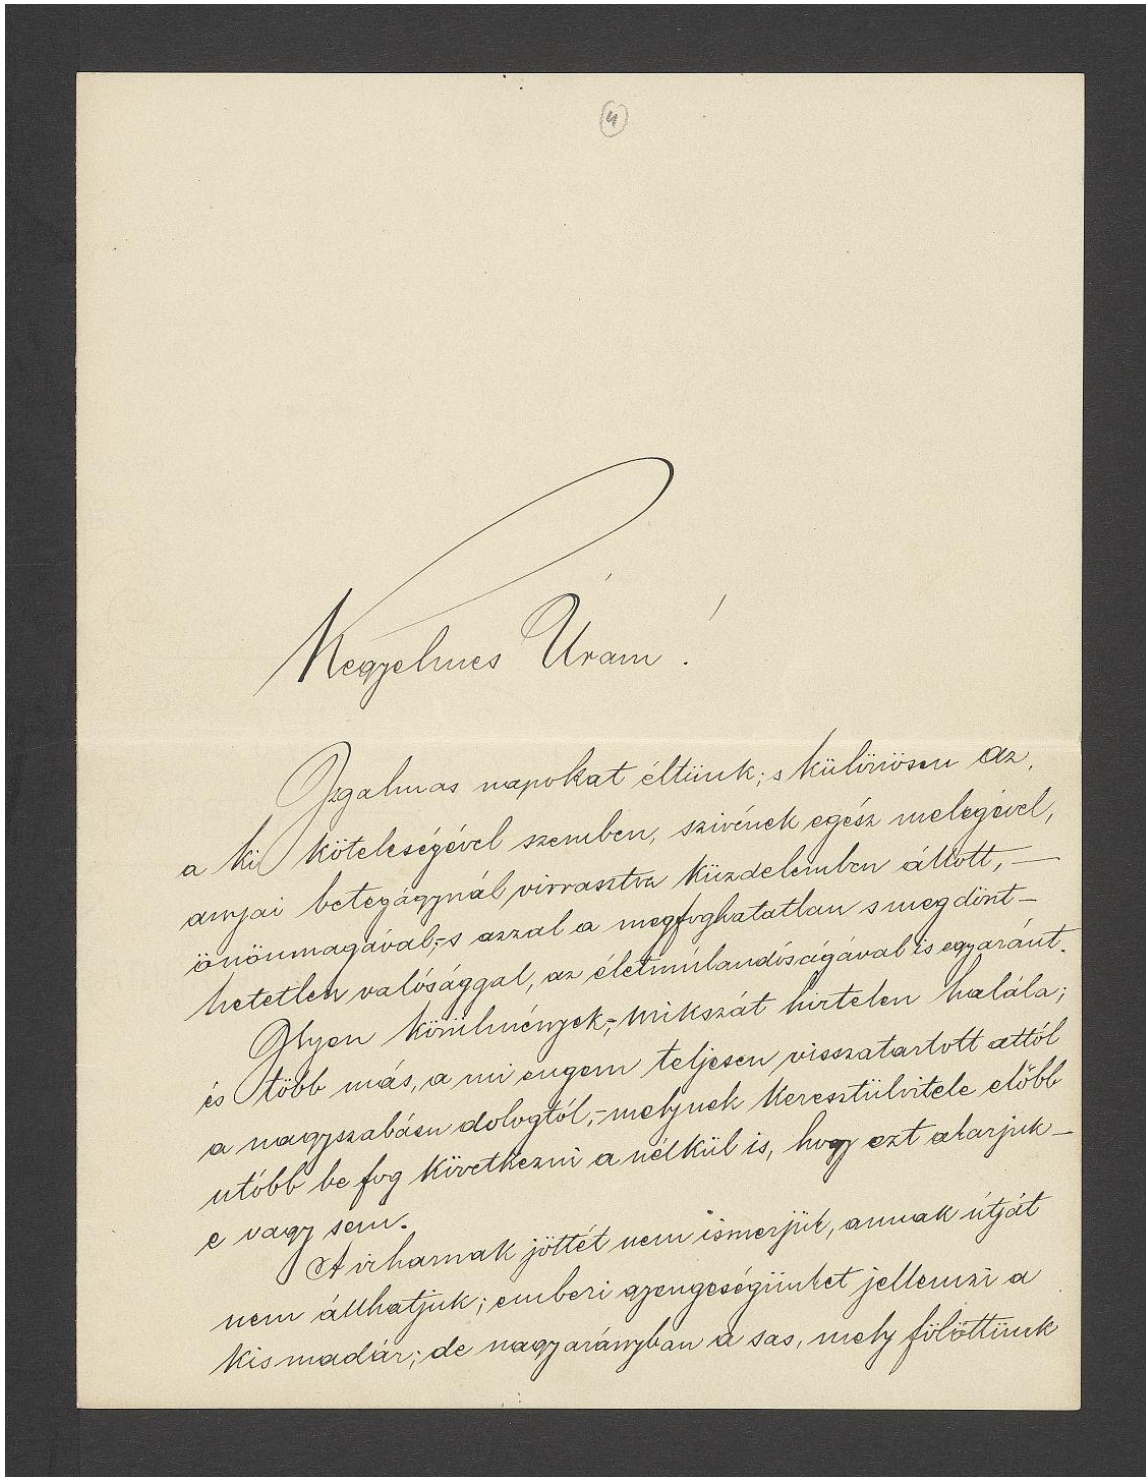 4
Kegyelmes Uram!
Izgalmas napokat éltünk; s különösen az,
a ki kötelességével szemben, szivének egész melegével,
anyai betegágynál virrasztva küzdelemben állott, —
önönmagával,-s azzal a megfoghatatlan s megdönt-
hetetlen valósággal, az élet múlandóságával is egyaránt.
Ilyen körülmények,-Mikszát hirtelen halála;
és több más, a mi engem teljesen visszatartott attól
a nagyszabásu dologtól,-melynek keresztülvitele előbb
utóbb be fog következni a nélkül is, hogy ezt akarjuk-
e vagy sem.
A viharnak jöttét nem ismerjük, annak útját
nem állhatjuk; emberi gyengeségünket jellemzi a
kis madár; de nagy arányban a sas, mely fölöttünk